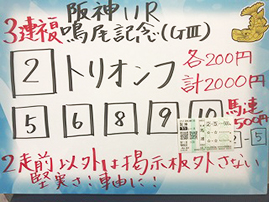 阪神11R
3連複 鳴尾記念(GⅢ)
2 トリオンフ 各200円
計2000円
5 6 8 9 10 馬連
500円
2-5
2走前以外は掲示板外さない
堅実さ!軸に!